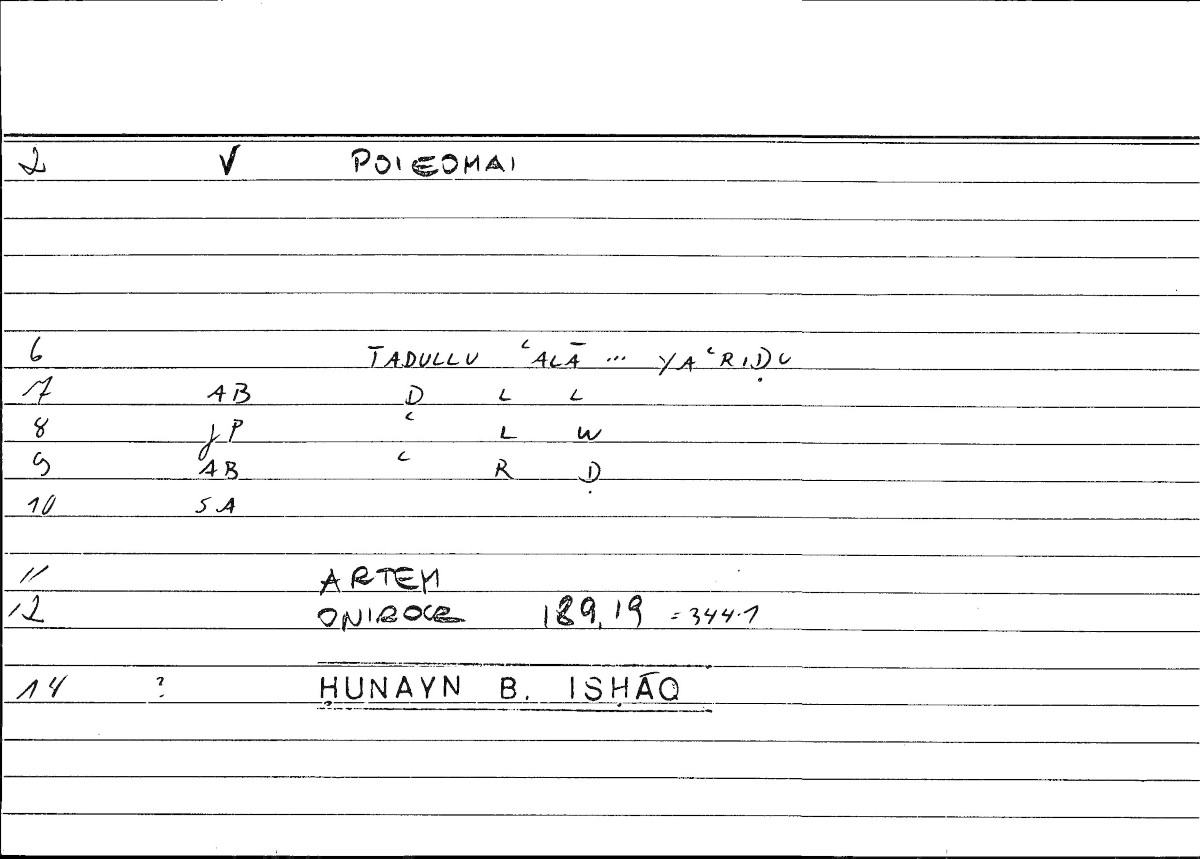 2 V POIEOMAI
6 TADULLU ʿALĀ ... YAʿRIḌU
7 AB D L L
8 JP ʿ L W
9 AB ʿ R Ḍ
10 SA
11 ARTEM
12 ONIROCR 189,19 = 344.7
14 ? ḤUNAYN B. ISḤĀQ